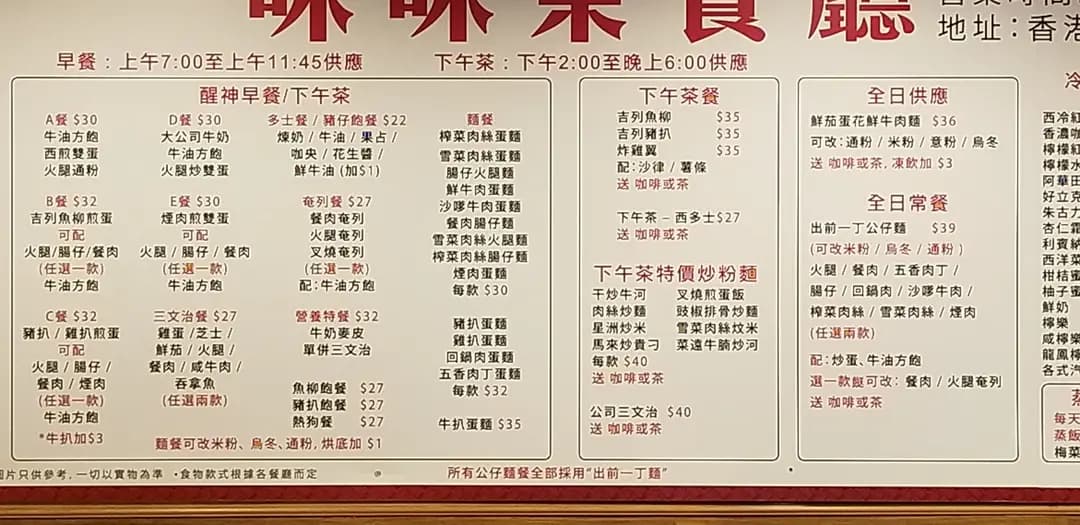 咪咪茶餐廳
地址：香港
早餐：上午7:00至上午11:45供應
下午茶：下午2:00至晚上6:00供應
醒神早餐/下午茶
A餐 $30
牛油方飽
西煎雙蛋
火腿通粉
B餐 $32
吉列魚柳煎蛋
可配
火腿/腸仔/餐肉
(任選一款)
牛油方飽
C餐 $32
豬扒 / 雞扒煎蛋
可配
火腿 / 腸仔 /
餐肉 / 煙肉
(任選一款)
牛油方飽
*牛扒加$3
D餐 $30
大公司牛奶
牛油方飽
火腿炒雙蛋
E餐 $30
煙肉煎雙蛋
可配
火腿 / 腸仔 / 餐肉
(任選一款)
牛油方飽
三文治餐 $27
雞蛋 /芝士 /
鮮茄 / 火腿 /
餐肉 / 咸牛肉 /
吞拿魚
(任選兩款)
多士餐 / 豬仔飽餐 $22
煉奶 / 牛油 / 果占 /
咖央 / 花生醬 /
鮮牛油 (加$1)
奄列餐 $27
餐肉奄列
火腿奄列
叉燒奄列
(任選一款)
配：牛油方飽
營養特餐 $32
牛奶麥皮
單併三文治
魚柳飽餐 $27
豬扒飽餐 $27
熱狗餐 $27
麵餐
榨菜肉絲蛋麵
雪菜肉絲蛋麵
腸仔火腿麵
鮮牛肉蛋麵
沙嗲牛肉蛋麵
餐肉腸仔麵
雪菜肉絲火腿麵
榨菜肉絲腸仔麵
煙肉蛋麵
每款 $30
豬扒蛋麵
雞扒蛋麵
回鍋肉蛋麵
五香肉丁蛋麵
每款 $32
牛扒蛋麵 $35
麵餐可改米粉、烏冬、通粉，烘底加 $1
下午茶餐
吉列魚柳 $35
吉列豬扒 $35
炸雞翼 $35
配：沙律 / 薯條
送 咖啡或茶
下午茶 – 西多士$27
送 咖啡或茶
下午茶特價炒粉麵
干炒牛河 叉燒煎蛋飯
肉絲炒麵 豉椒排骨炒麵
星洲炒米 雪菜肉絲炆米
馬來炒貴刁 菜遠牛腩炒河
每款 $40
送 咖啡或茶
公司三文治 $40
送 咖啡或茶
全日供應
鮮茄蛋花鮮牛肉麵 $36
可改：通粉 / 米粉 / 意粉 / 烏冬
送 咖啡或茶，凍飲加 $3
全日常餐
出前一丁公仔麵 $39
(可改米粉 / 烏冬 / 通粉 )
火腿 / 餐肉 / 五香肉丁 /
腸仔 / 回鍋肉 / 沙嗲牛肉 /
榨菜肉絲 / 雪菜肉絲 / 煙肉
(任選兩款)
配：炒蛋、牛油方飽
選一款餸可改：餐肉 / 火腿奄列
送 咖啡或茶
冷
西冷紅
香濃咖
檸檬紅
檸檬水
阿華田
好立克
朱古力
杏仁霜
利賓納
西洋菜
柑桔蜜
柚子蜜
鮮奶
檸樂
咸檸樂
龍鳳檸
各式汽
每天
蒸飯
梅菜
圖片只供參考，一切以實物為準 •食物款式根據各餐廳而定
所有公仔麵餐全部採用“出前一丁麵”